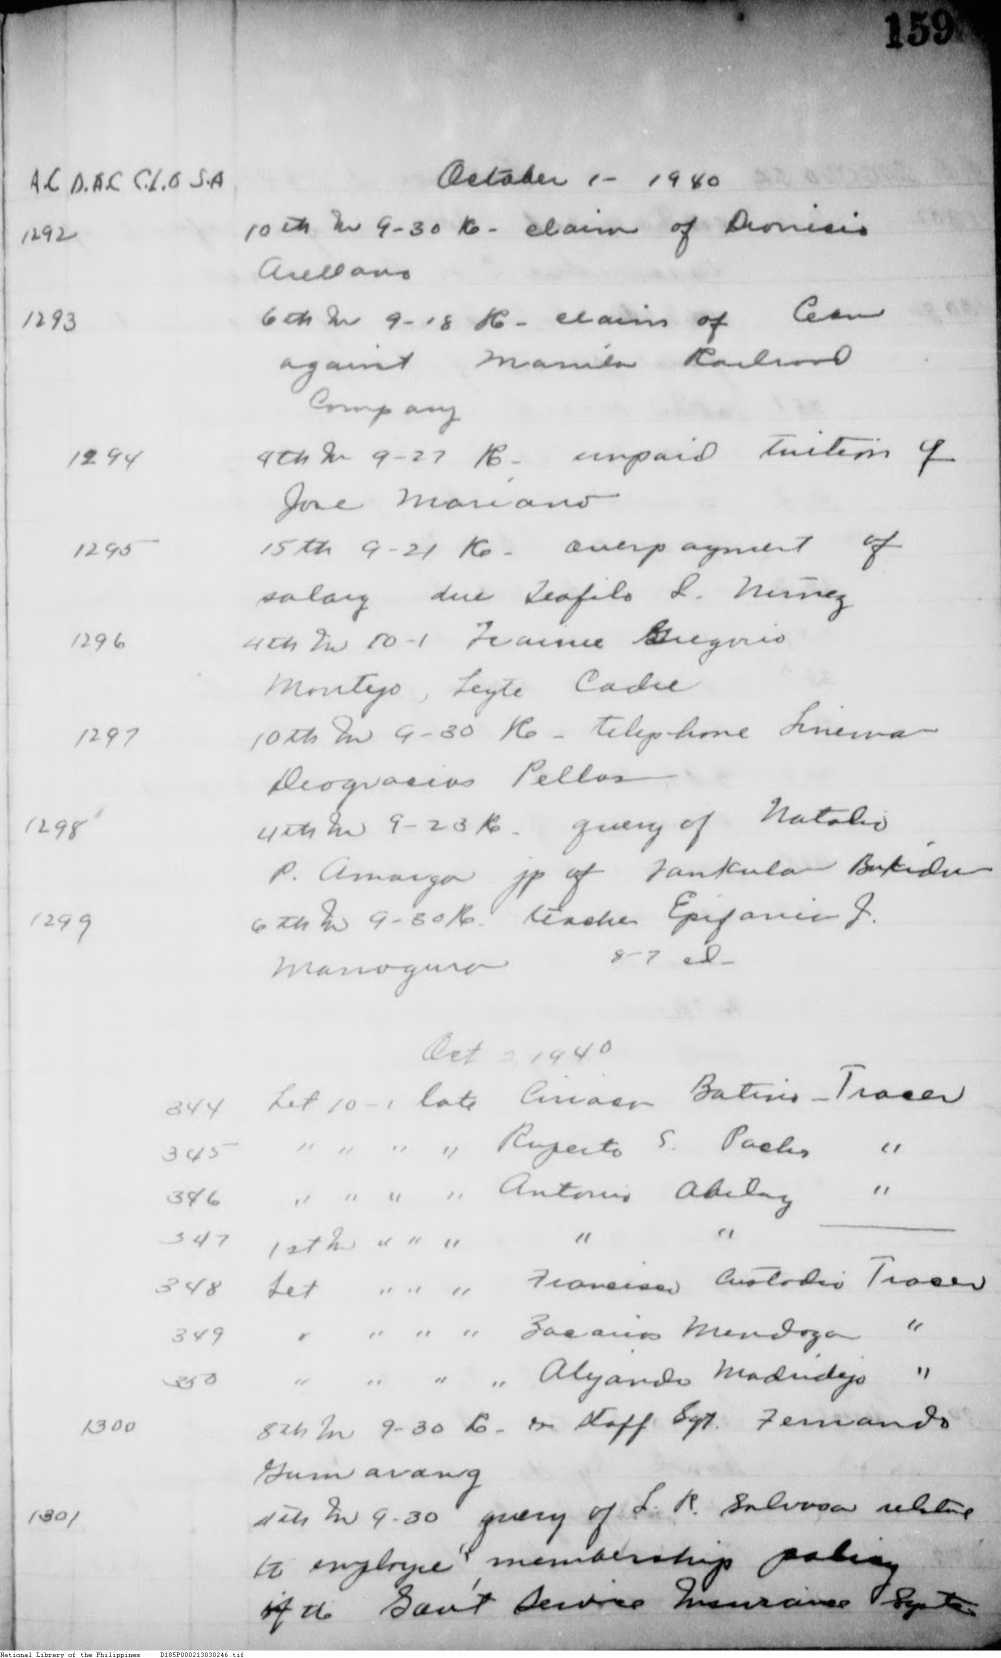 159
A.C D.A.C C.L.O S.A October 1- 1940
1292 10th In 9-30 R- claim of Dionisio
Arellano
1293 6th In 9-18 R- claim of
against Manila Railroad
Company
1294 4th In 9-27 R- unpaid tuition of
Jose Mariano
1295 15th 9-21 R- overpayment of
salary due Teofilo S. Nuñez
1296 4th In 10-1 Trainee Gregorio
Montejo, Leyte Cadre
1297 10th In 9-30 R- telephone Lineman
Deogracias Pellas
1298 4th In 9-23 R- query of Natalio
P. Amarga jp of Tankulan Bukidn
1299 6th In 9-30 R- teacher Epifanio J.
Manogura 8-7 el-
Oct 2 1940
344 Let 10-1 late Ciriaco Batino - Tracer
345 " " " " Ruperto S. Pacho "
346 " " " " Antonio Abilay "
347 1st In " " " " "
348 Let " " " Francisco Custodio Tracer
349 " " " " Zacarias Mendoza "
350 " " " " Alejandro Madridejo "
1300 8th In 9-30 R- Staff Sgt. Fernando
Gumarang
1301 4th In 9-30 query of L. R. Salvosa relative
to employe's membership policy
of the Gov't Service Insurance System
National Library of the Philippines D185P000213030246.tif